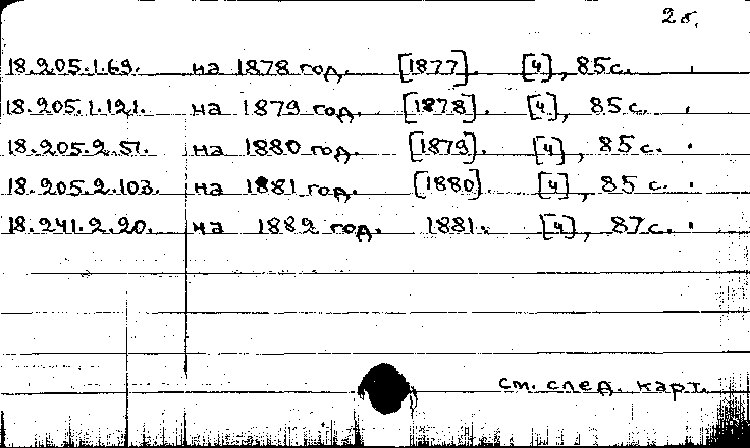 2б.
18.205.1.69. на 1878 год. [1877]. [4], 85с.
18.205.1.121. на 1879 год. [1878]. [4], 85с.
18.205.2.51. на 1880 год. [1879]. [4], 85с.
18.205.2.103. на 1881 год. [1880]. [4], 85 с.
18.241.2.20. на 1882 год. 1881. [4], 87с.
см. след. карт.